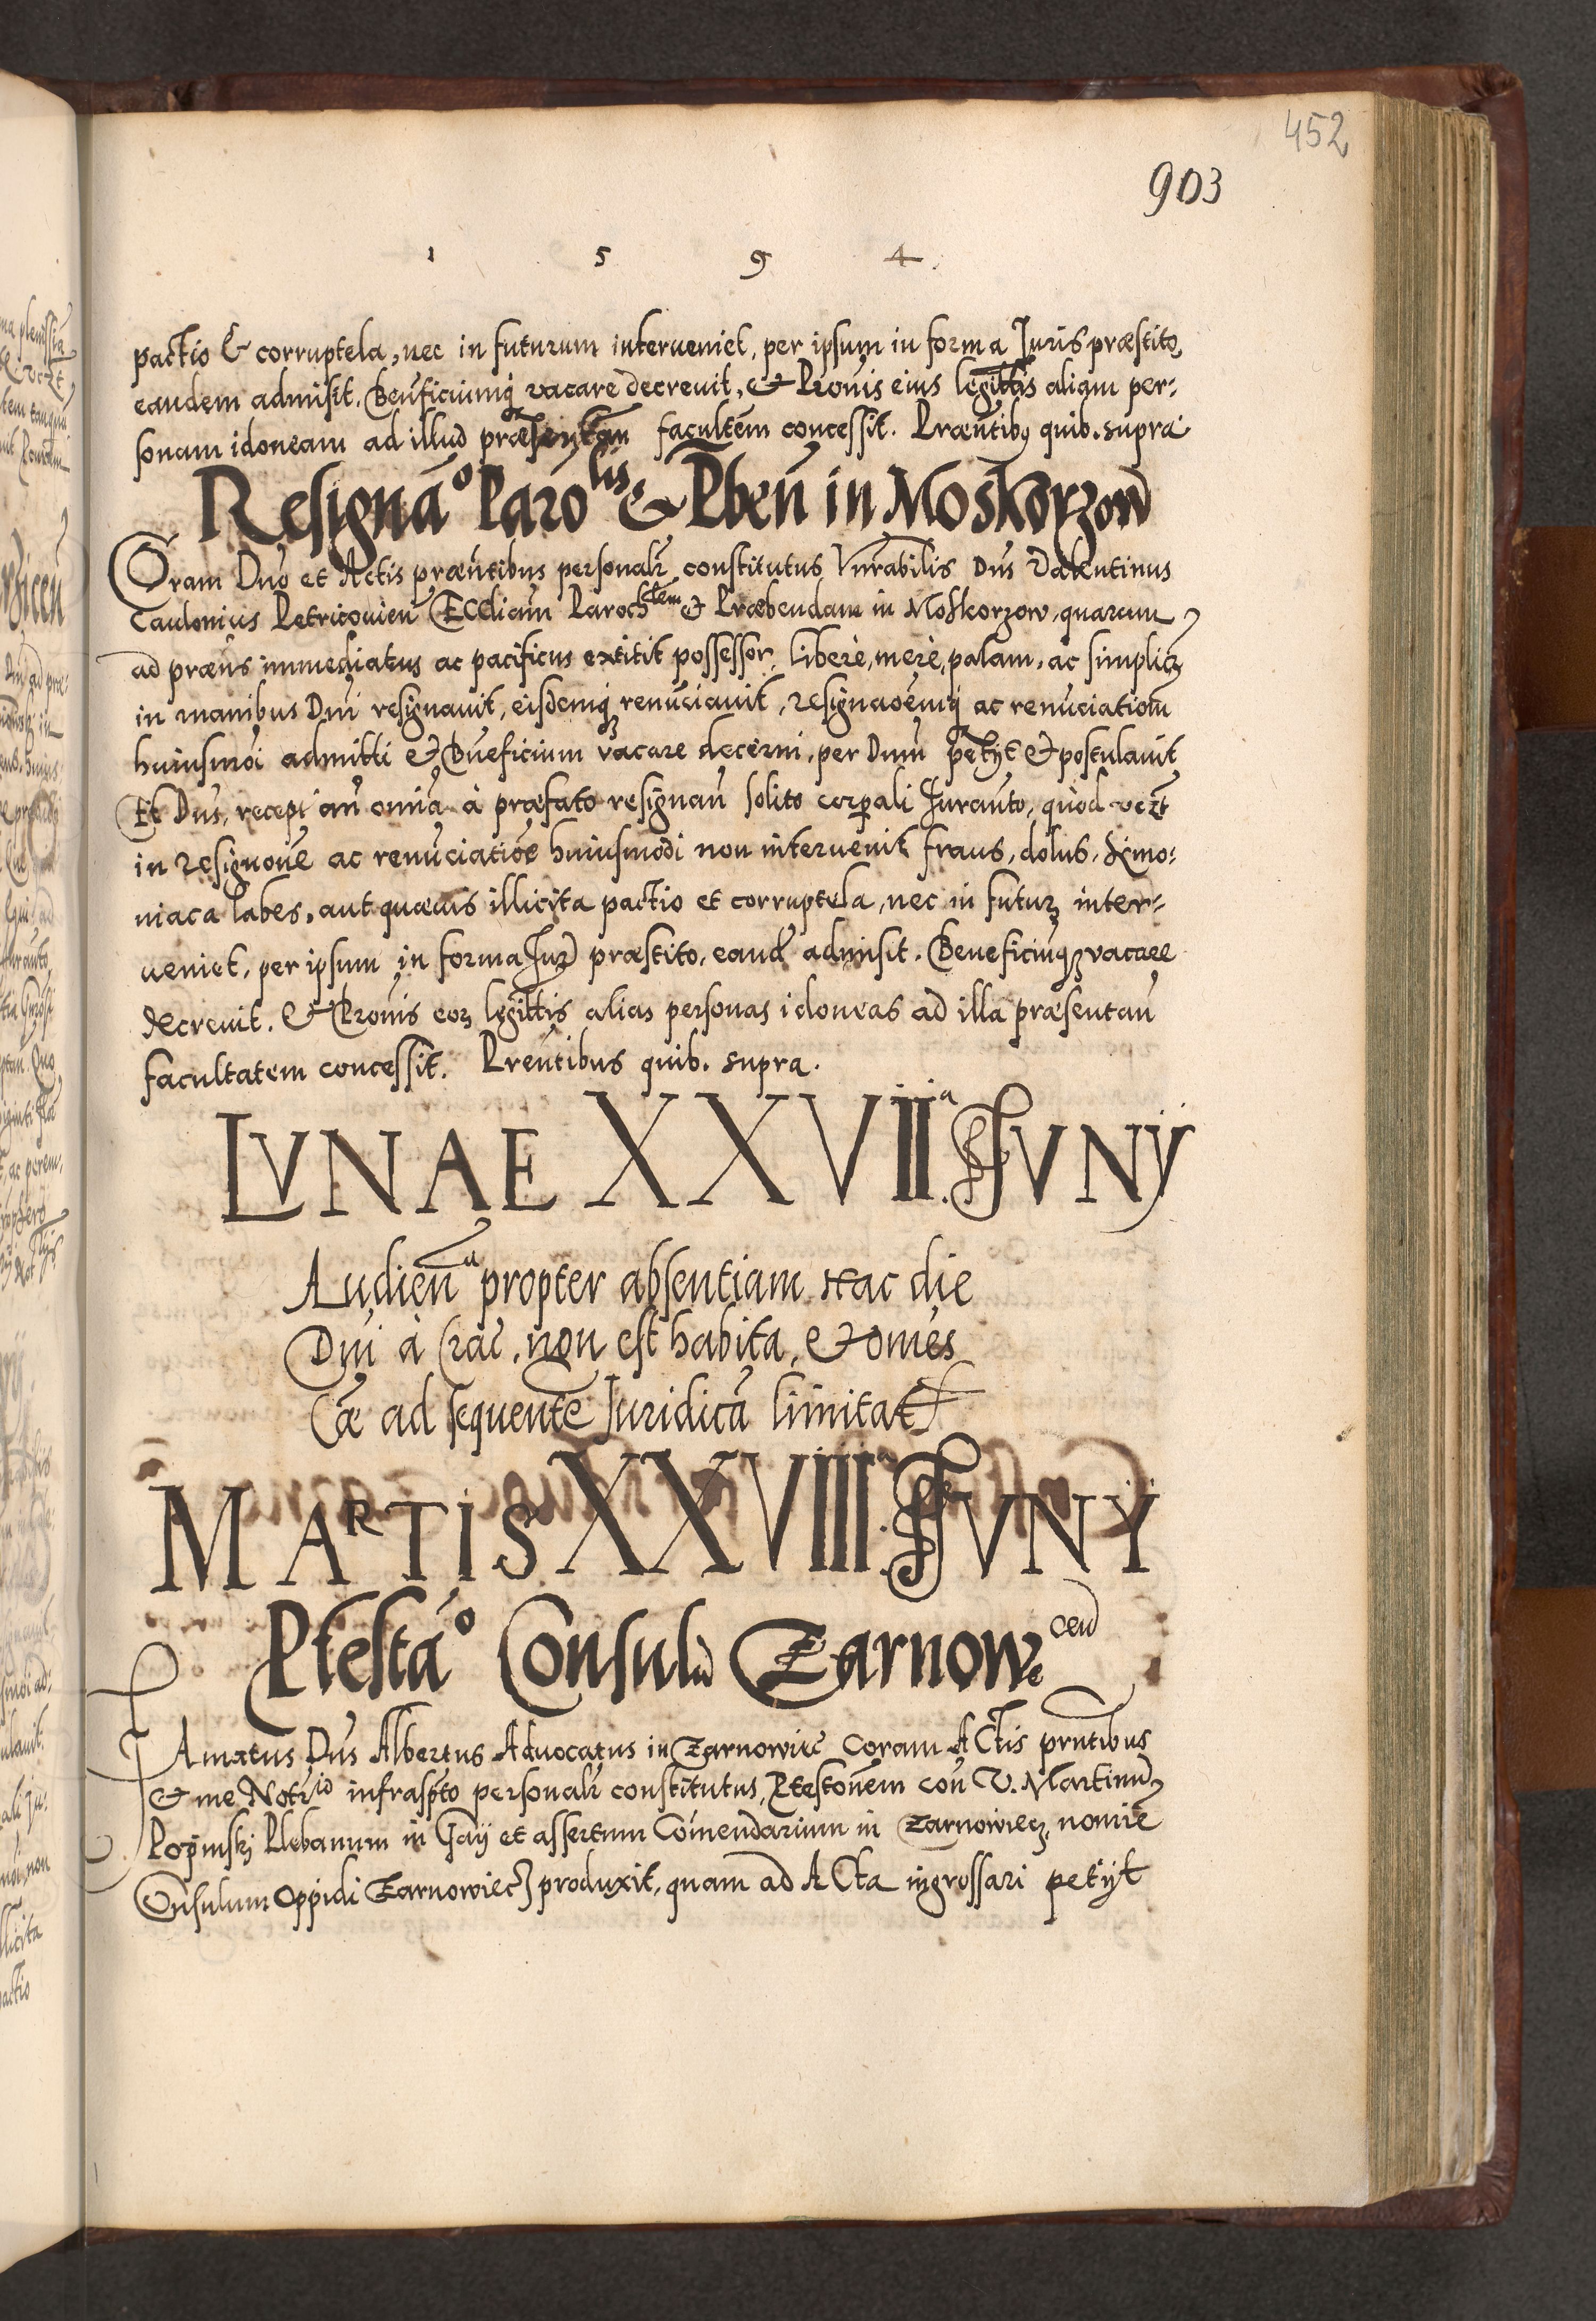 452
903
1 5 9 4
pactio & corruptela, nec in futurum interueniet, per ipsum in forma Juris præstito,
eandem admisit. Beńficiumq vacare decreuit, & Pr̃onis eius leg̃ittis aliam per-
sonam idoneam ad illud præsentan̄ facultēm concessit. Præńtibq quib. supra
Resignão Paro lis & Pben̄ in Moskorzow
Coram Dn̄o et Actis præn̄tibus personalr constitutus Vn̄rabilis Dn̄s Valentinus
Caulonius Petricouien̄ Eccl̄iam Paroch lem & Præbendam in Moskorzow, quarum
ad præn̄s immediatus ac pacificus extitit possessor, liberè, merè, palam, ac simplicz
in manibus Dn̄i resignauit, eisdemq renūciauit, resignaoēmq ac renūciationū
huiusmōi admitti & Bn̄eficium vacare decerni, per Dnū petyt & postulauit
Et Dn̄s, recept an̄ om̄ia à præfato resignan̄ solito corpali Juran̄to, quòd
in resignoñe ac renūciatiōe huiusmōdi non interuenit fraus, dolus, Simo-
niaca labes, aut quæuis illicita pactio et corruptela, nec in futurz inter-
ueniet, per ipsum in forma Jur præstito, eand admisit. Beneficiuqz vacare
decreuit. & Pr̃onis eorz leg̃ittis alias personas idoneas ad illa præsentan̄
facultatem concessit. Pren̄tibus quib. supra.
LVNAE XXVII a JVNY
Audien̄ a propter absentiam hac die
Dn̄i à Crac̄. non est habita, & om̄es
Cāæ ad sequentē Juridicā limitat
MARTIS XXVIII a JVNY
Ptestão Consulū Zarnow cen̄
Famatus Dn̄s Albertus Aduocatus in Zarnowiec coram Actis prn̄tibus
& me Not rio infrasp̄to personalr constitutus, Ptestōnem con̄ V. Martinū
Plebanum in Gay et assertum Com̄endarium in Zarnowiecz, nomīe
Consulum Oppidi Zarnowiecz produxit, quam ad Acta ingrossari petijt